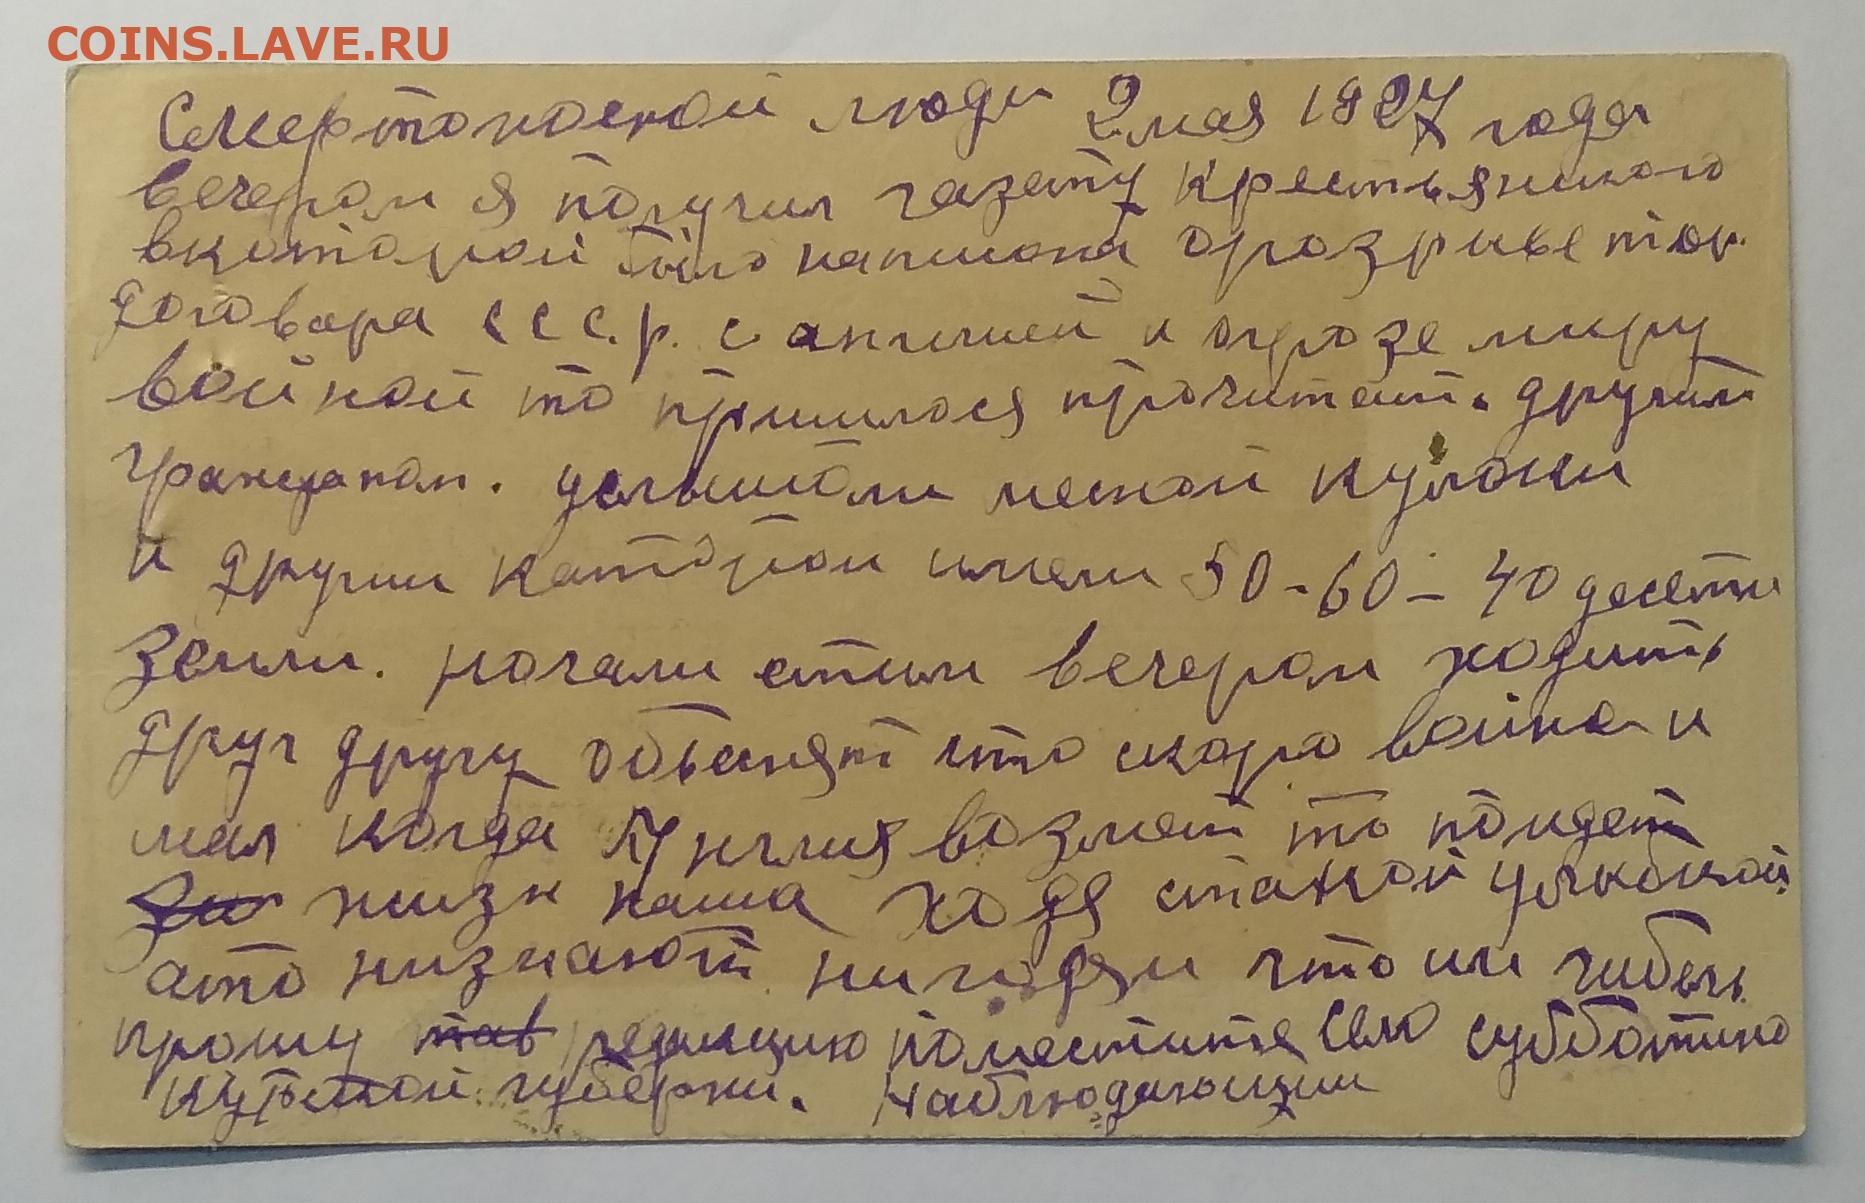 COINS.LAVE.RU
люди 2 мая 1927 года
вечером я получил газету Крестьянского
вкоторой было написона оразрыве тор.
договора С С С.р. с англией и огрозе миру
войной то пришлося прочитат. другим
гражданам. услышали меской кулоки
и другии каторои имели 50-60-40 десети
земли. начали етим вечером ходить
друг другу объеснят что скоро война и
мол когда Англия возмет то поидет
жизн наша ходя
ато низнают нигодяи что им гибель
прошу редакцию поместите Село субботино
губерни. наблюдающии